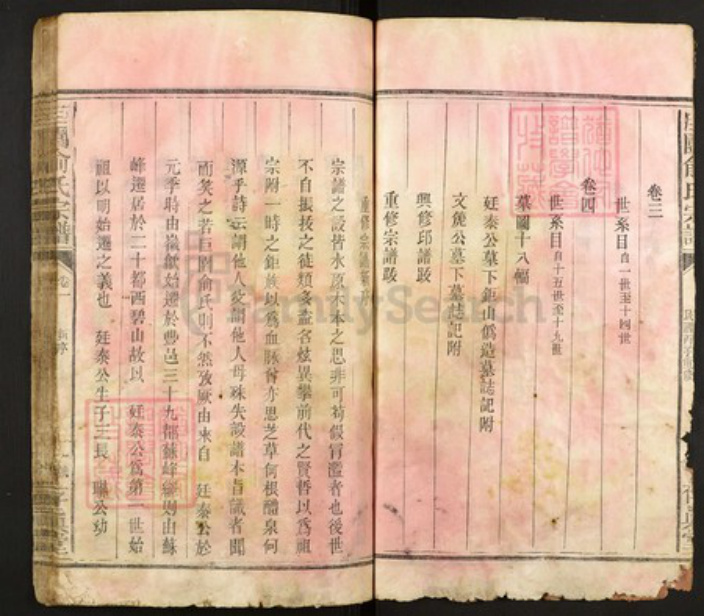 卷三
世系目自一世至十四世
卷四
世系目自十五世至十九世
墓圖十八幅
廷泰公墓下鉅山僞造墓誌記附
文煥公墓下墓誌記附
興修邱譜跋
重修宗譜跋
重修宗譜
宗譜之設皆水原木本之思非可苟假冒濫者也後世
不自振拔之徒類多盜名炫異攀前代之賢哲以爲祖
宗附一時之鉅族以爲血脉曾亦思芝草何根醴泉何
源乎詩云謂他人父謂他人母殊失設譜本旨識者聞
而矣之若巨關俞氏則不然攷厥由來自 廷泰公於
元季時由徽歙始遷於豐邑三十九都蘇峰繼則由蘇
峰遷居於二十都西碧山故以 廷泰公爲第一世始
祖以明始遷之義也 廷泰公生子三長 公幼
俞氏宗譜
卷一
FamilySearch